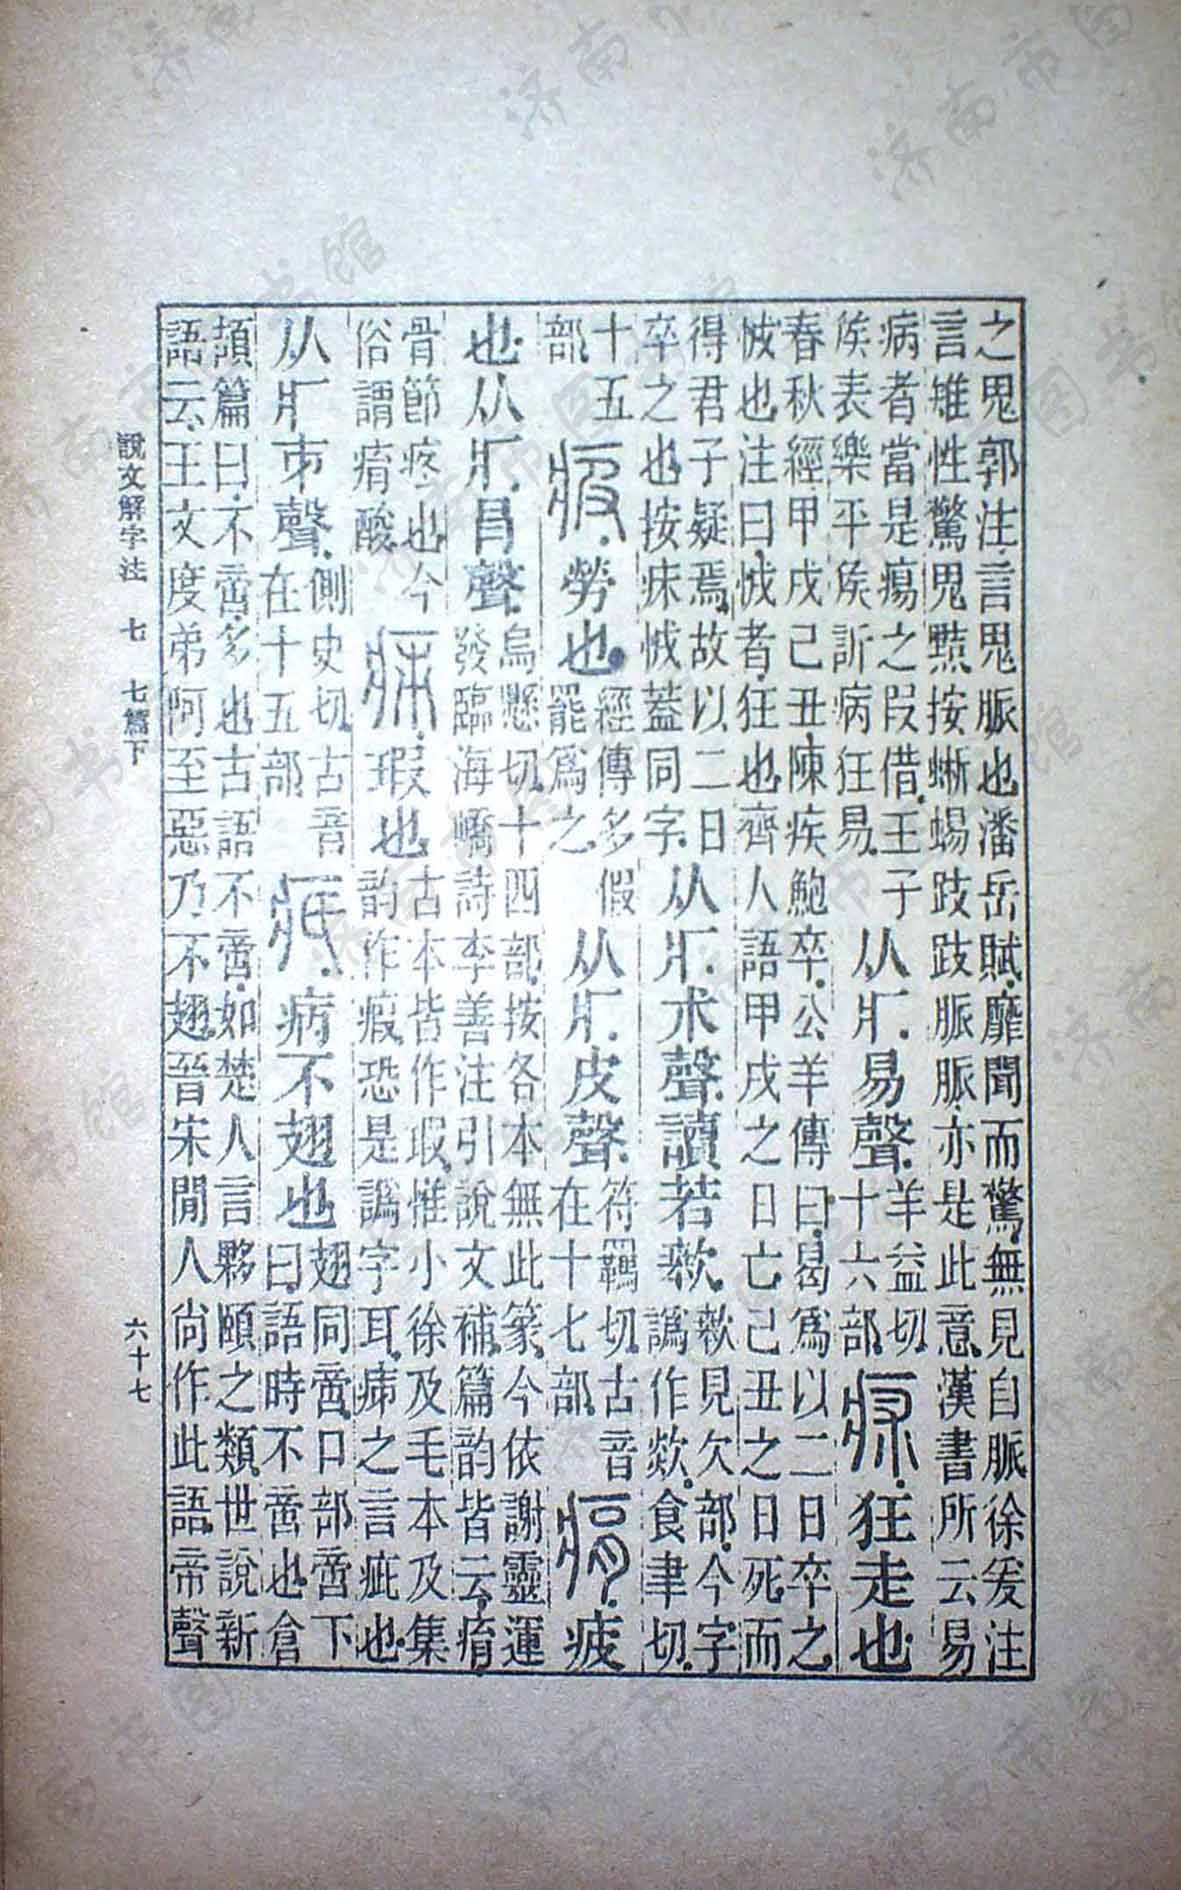 之鬼郭注言鬼脈也潘岳賦靡聞而驚無見自脈徐爰注
言雉性驚鬼黠按蜥蜴跂跂脈脈亦是此意漢書所云易
病者當是瘍之叚借王子
矦表樂平矦訢病狂易
从疒易聲
羊益切
十六部
㾁狂走也
春秋經甲戌己丑陳矦鮑卒公羊傳曰曷爲以二日卒之
怴也注曰怴者狂也齊人語甲戌之日亡己丑之日死而
得君子疑焉故以二日
卒之也按㾁怴蓋同字
从疒朮聲讀若欻
欻見欠部今字
譌作欻食聿切
十五
部
疲勞也
經傳多假
罷爲之
从疒皮聲
符羈切古音
在十七部
痟疲
也从疒肙聲
烏懸切十四部按各本無此篆今依謝靈運
發臨海嶠詩李善注引說文補篇韵皆云痟
骨節疼也今
俗謂痟酸
㾊瑕也
古本皆作瑕惟小徐及毛本及集
韵作瘕恐是譌字耳㾊之言疵也
从疒𠂔聲
側史切古音
在十五部
疧病不翅也
翅同啻口部啻下
曰語時不啻也倉
頡篇曰不啻多也古語不啻如楚人言夥頤之類世說新
語云王文度弟阿至惡乃不翅晉宋閒人尚作此語帝聲
說文解字注 七 七篇下 六十七